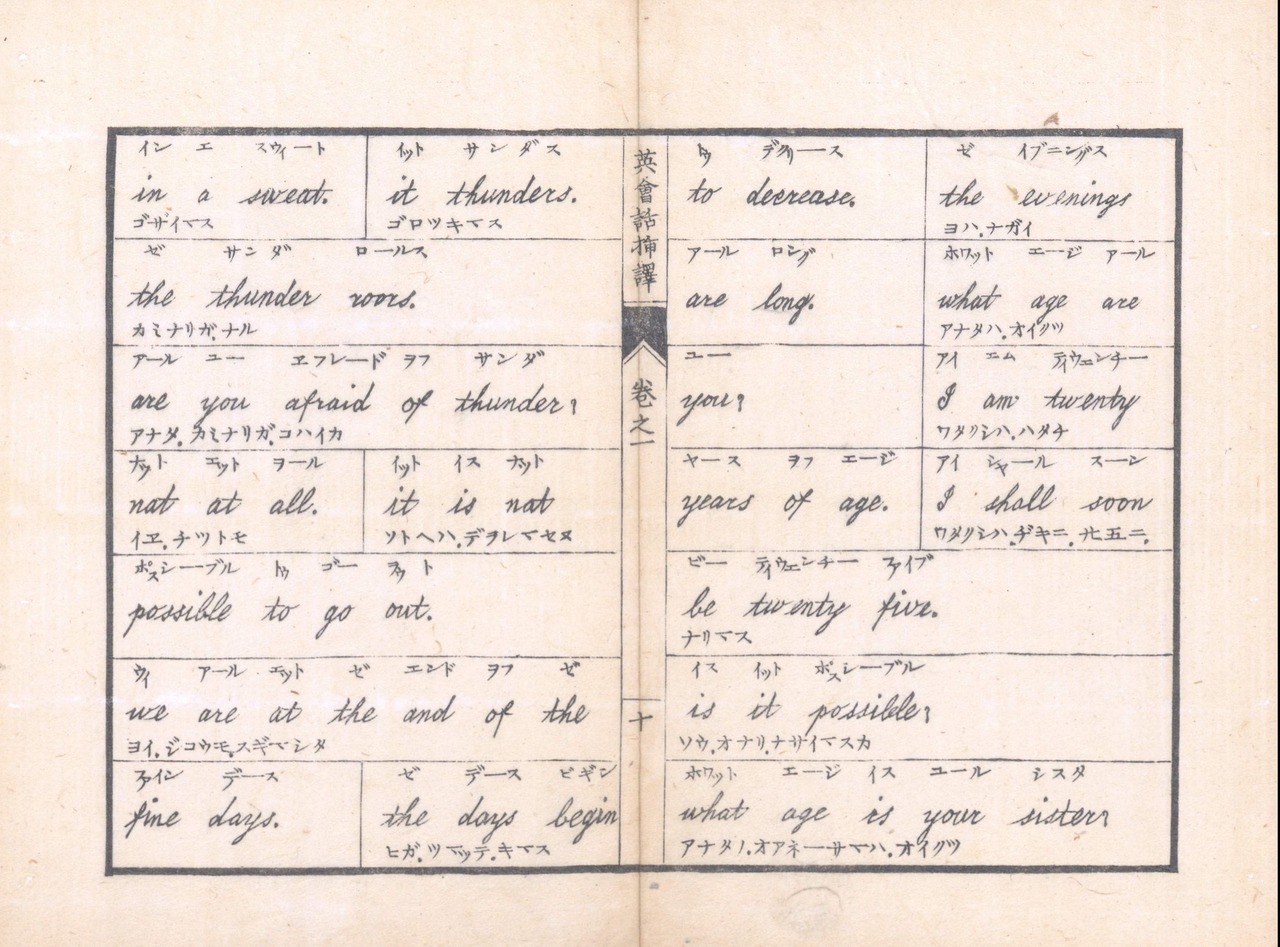 イン エ スウィート
in a sweat.
ゴサイマス
イット サンダス
it thunders.
ゴロツキマス
ゼ サンダ ロールス
the thunder roors.
カミナリガ.ナル
アール ユー ヱフレード ヲフ サンダ
are you afraid of thunder?
アナタ.カミナリガ.コハイカ
ナット エット ヲール
nat at all.
イヱ.チツトモ
イット イス ナット
it is nat
ソトヘハ.デヲレマセヌ
ポスシーブル トゥ ゴー ヲット
possible to go out.
ウィ アール エット ゼ エンド ヲフ ゼ
we are at the and of the
ヨイ.ジコウモ.スギマシタ
ファイン デース
fine days.
ゼ デース ビギン
the days begin
ヒガ.ツマッテ.キマス
英會話挿譯
卷之一
十
トゥ デクリース
to decrease.
ゼ イブニングス
the evenings
ヨハ.ナガイ
アール ロング
are long.
ホワット エージ アール
what age are
アナタハ.オイクツ
ユー
you?
アイ エム ティウェンチー
I am twenty
ワタクシハ.ハタチ
ヤース ヲフ エージ
years of age.
アイ シャール スーン
I shall soon
ワタクシハ.ヂキニ.廿五ニ.
ビー ティウェンチー ファイブ
be twenty five.
ナリマス
イス イット ポスシーブル
is it possible?
ソウ.オナリ.ナサイマスカ
ホワット エージ イス ユール シスタ
what age is your sister?
アナタノ.オアネーサマハ.オイクツ